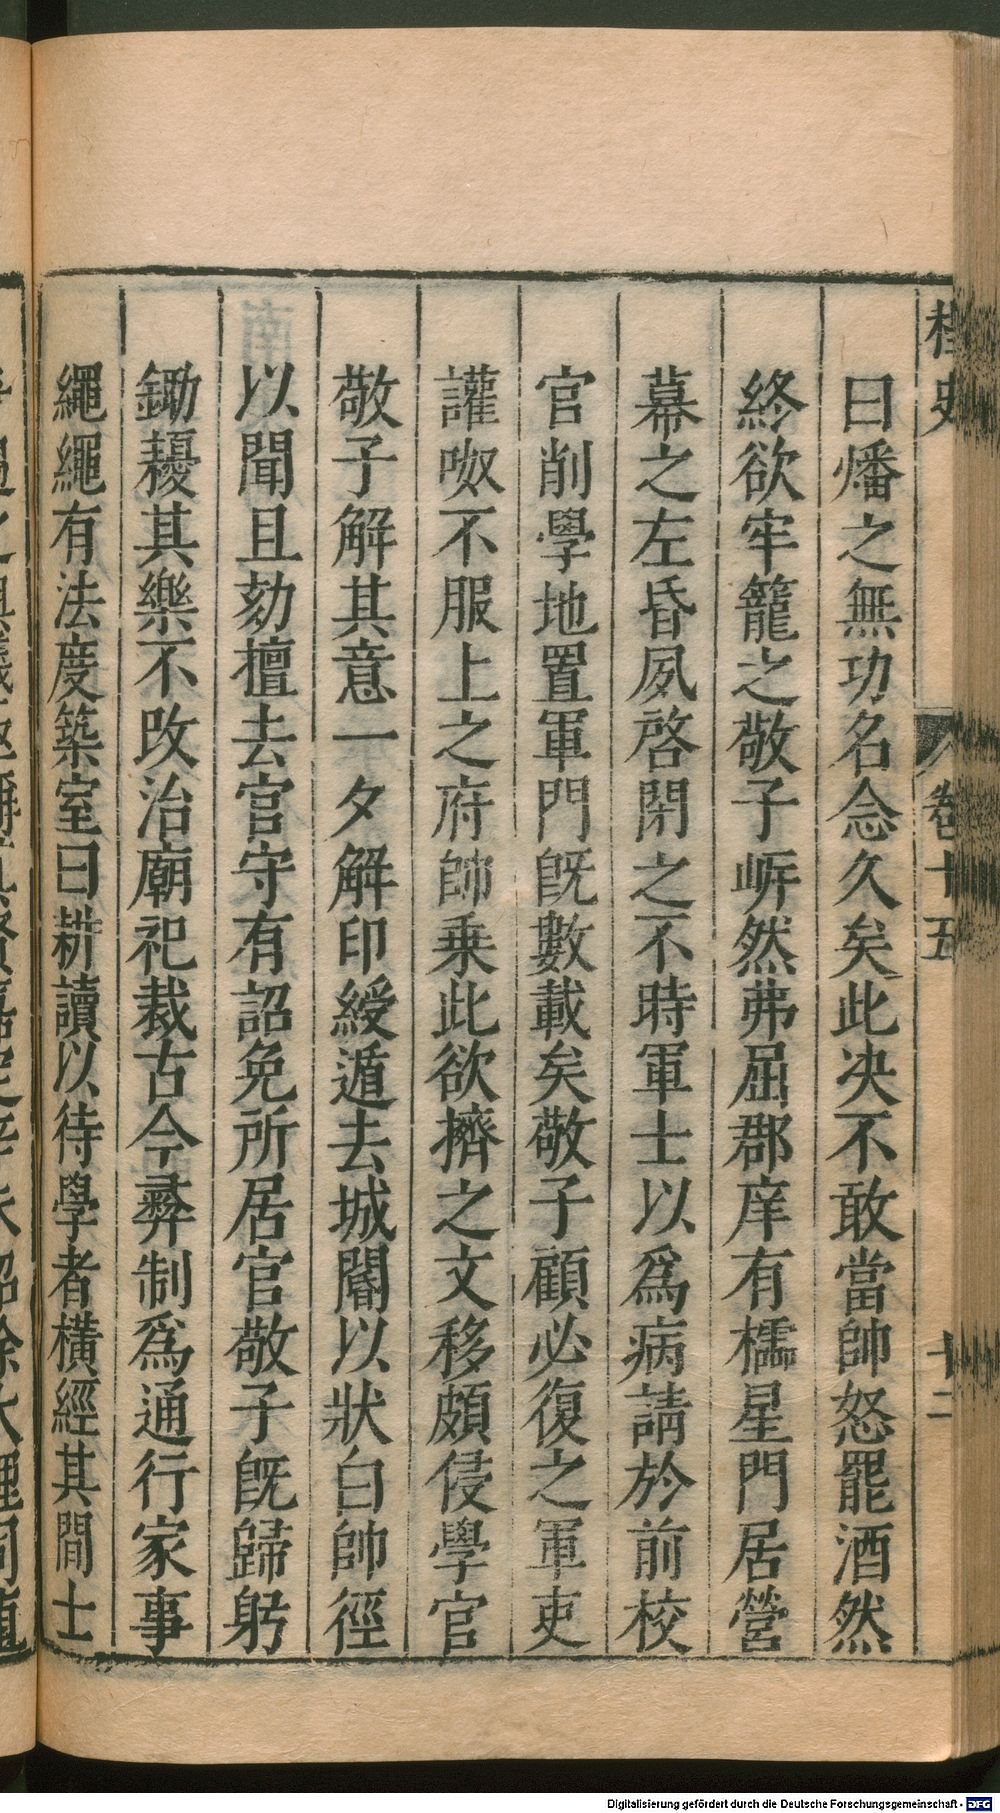 桯史
卷十五
十二
曰燔之無功名念久矣此决不敢當帥怒罷酒然
終欲牢籠之敬子㟁然弗屈郡庠有櫺星門居營
幕之左昏夙啓閉之不時軍士以爲病請於前校
官削學地置軍門旣數載矣敬子顧必復之軍吏
讙呶不服上之府帥乗此欲擠之文移頗侵學官
敬子解其意一夕解印綬遁去城闉以狀白帥徑
以聞且劾擅去官守有詔免所居官敬子旣歸躬
鋤耰其樂不改治廟祀裁古今彛制爲通行家事
繩繩有法度築室曰耕讀以待學者橫經其間士
Digitalisierung gefördert durch die Deutsche Forschungsgemeinschaft - DFG